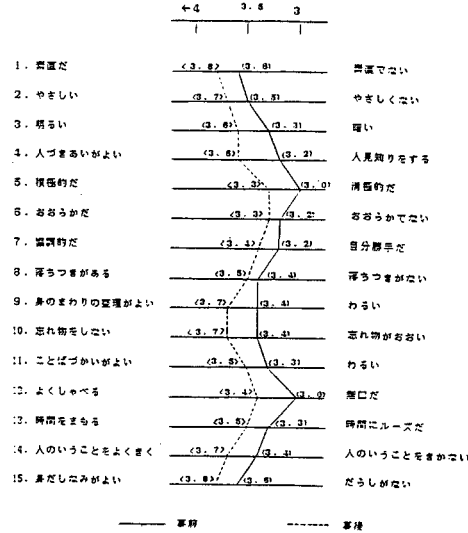 ←4 3.5 3
1. 素直だ (3.8) (3.6) 素直でない
2. やさしい (3.7) (3.5) やさしくない
3. 明るい (3.6) (3.3) 暗い
4. 人づきあいがよい (3.6) (3.2) 人見知りをする
5. 積極的だ (3.3) (3.0) 消極的だ
6. おおらかだ (3.3) (3.2) おおらかでない
7. 協調的だ (3.4) (3.2) 自分勝手だ
8. 落ちつきがある (3.5) (3.4) 落ちつきがない
9. 身のまわりの整理がよい (3.7) (3.4) わるい
10. 忘れ物をしない (3.7) (3.4) 忘れ物がおおい
11. ことばづかいがよい (3.5) (3.3) わるい
12. よくしゃべる (3.4) (3.0) 無口だ
13. 時間をまもる (3.5) (3.3) 時間にルーズだ
14. 人のいうことをよくきく (3.7) (3.4) 人のいうことをきかない
15. 身だしなみがよい (3.8) (3.6) だらしがない
事前 事後